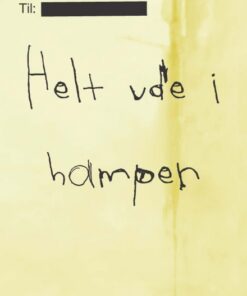 Til:
Helt vde i
hampen